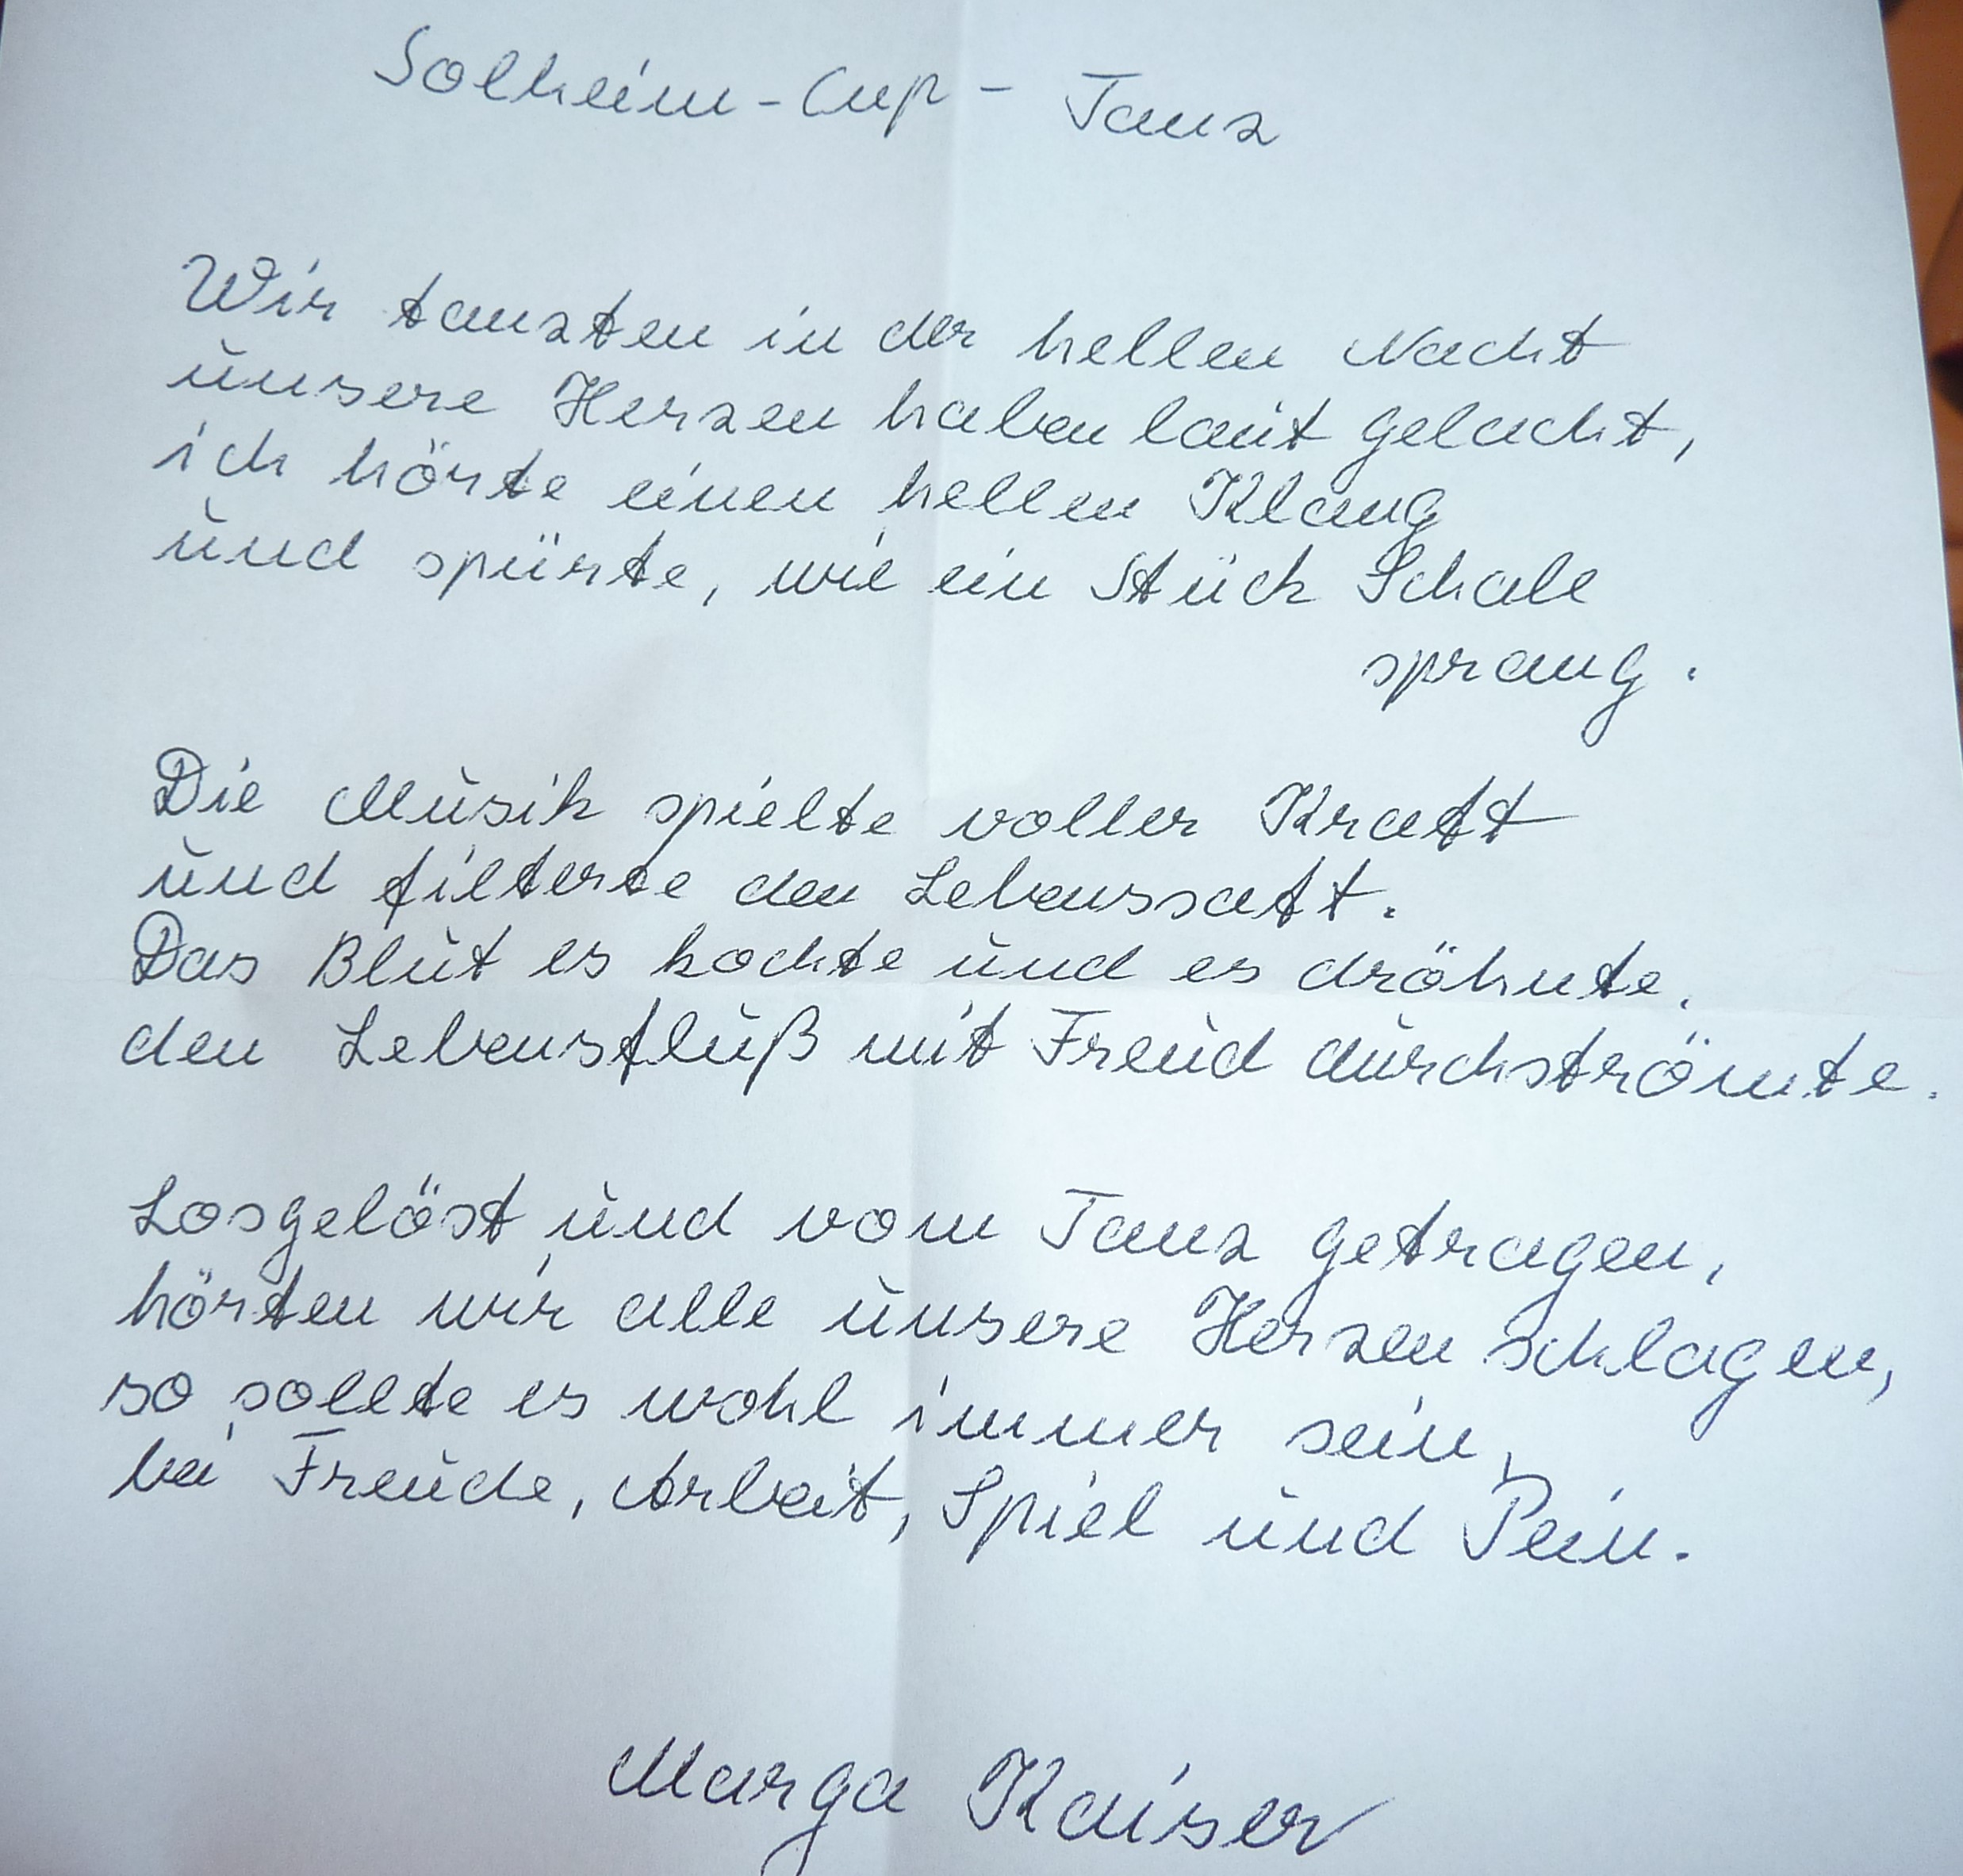 Solheim-Cup-Tanz
Wir tanzten in der hellen Nacht
unsere Herzen haben laut gelacht,
ich hörte einen hellen Klang
und spürte, wie ein Stück Schale
sprang.
Die Musik spielte voller Kraft
und filterte den Lebenssaft.
Das Blut es kochte und es dröhnte,
den Lebensfluß mit Freud durchströmte.
Losgelöst und vom Tanz getragen,
hörten wir alle unsere Herzen schlagen,
so sollte es wohl immer sein,
bei Freude, Arbeit, Spiel und Pein.
Marga Kaiser